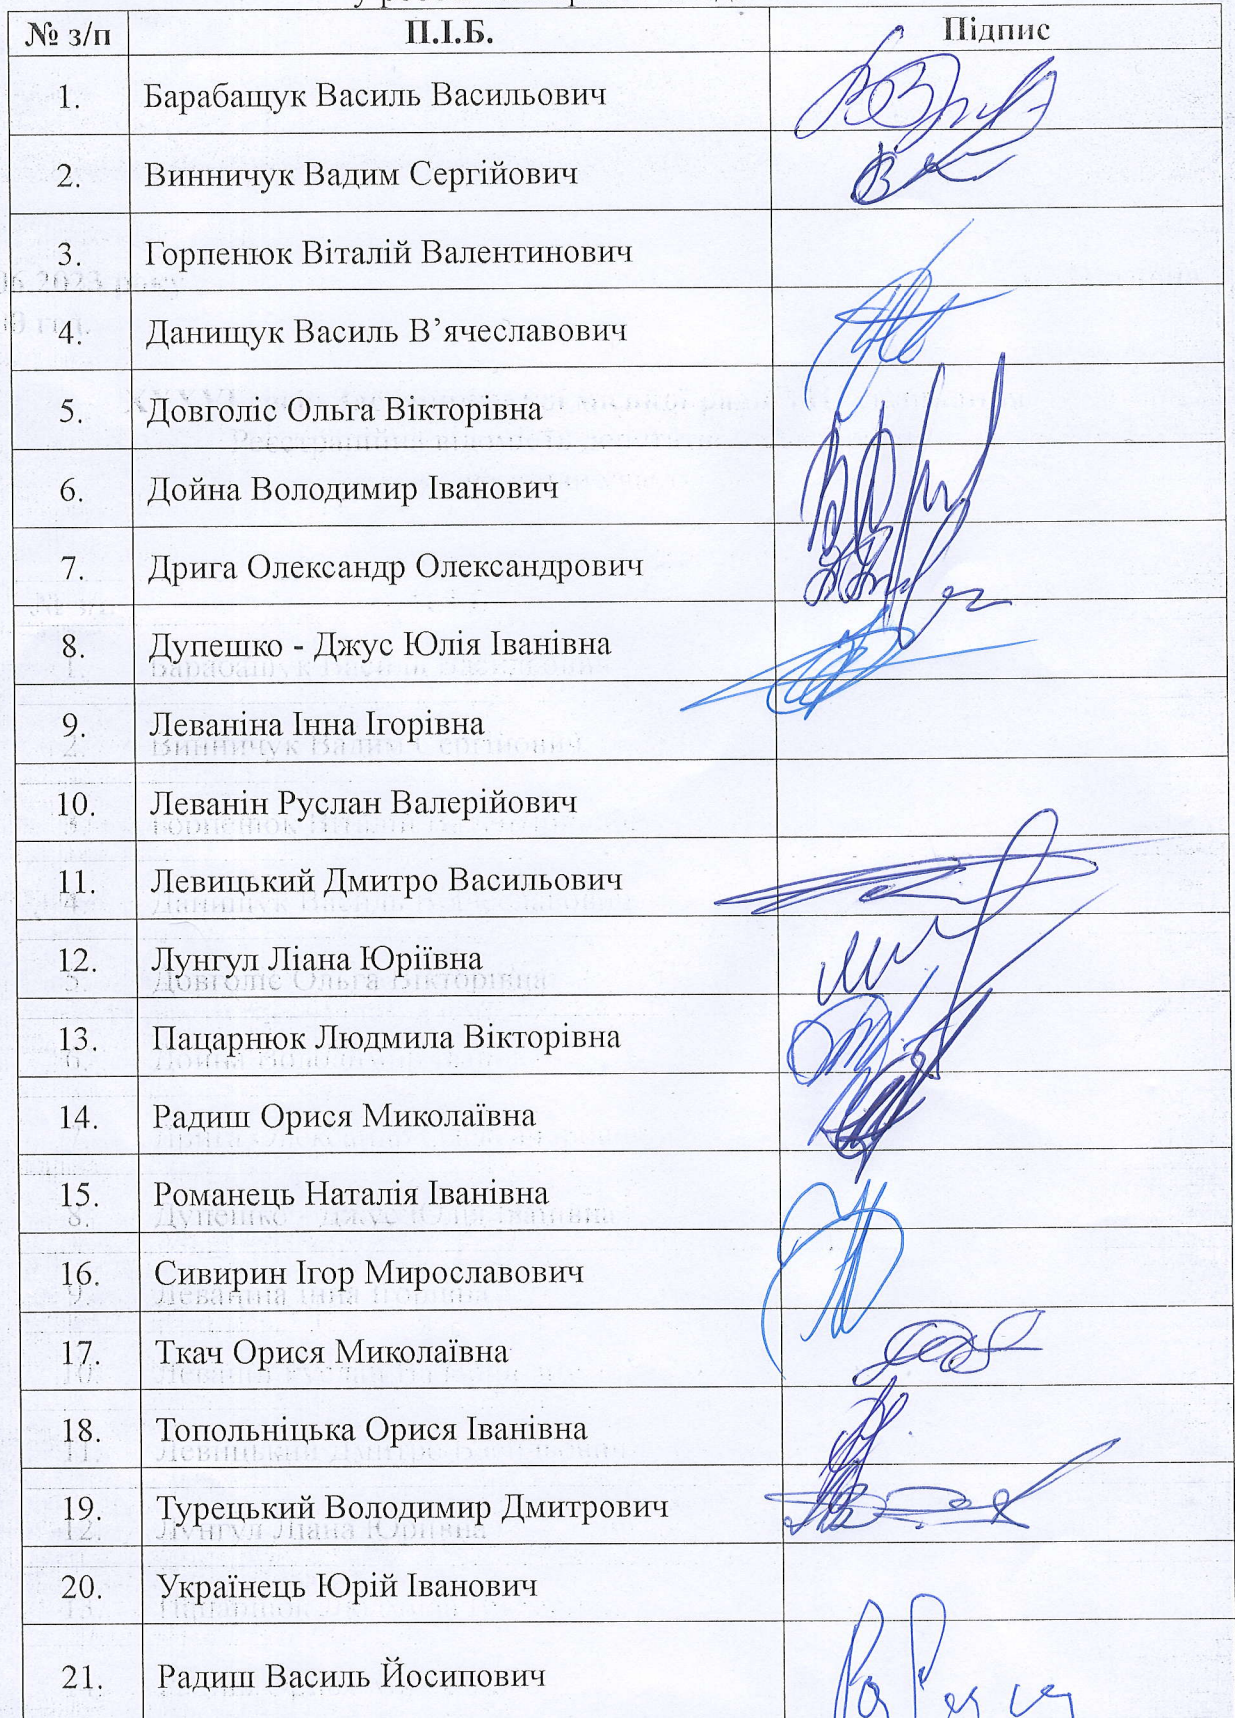 № з/п П.І.Б. Підпис
1. Барабащук Василь Васильович
2. Винничук Вадим Сергійович
3. Горпенюк Віталій Валентинович
4. Данищук Василь В’ячеславович
5. Довголіс Ольга Вікторівна
6. Дойна Володимир Іванович
7. Дрига Олександр Олександрович
8. Дупешко - Джус Юлія Іванівна
9. Леваніна Інна Ігорівна
10. Леванін Руслан Валерійович
11. Левицький Дмитро Васильович
12. Лунгул Ліана Юріївна
13. Пацарнюк Людмила Вікторівна
14. Радиш Орися Миколаївна
15. Романець Наталія Іванівна
16. Сивирин Ігор Мирославович
17. Ткач Орися Миколаївна
18. Топольніцька Орися Іванівна
19. Турецький Володимир Дмитрович
20. Українець Юрій Іванович
21. Радиш Василь Йосипович